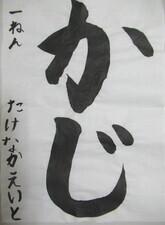 かじ
一ねん
たけなかえいと